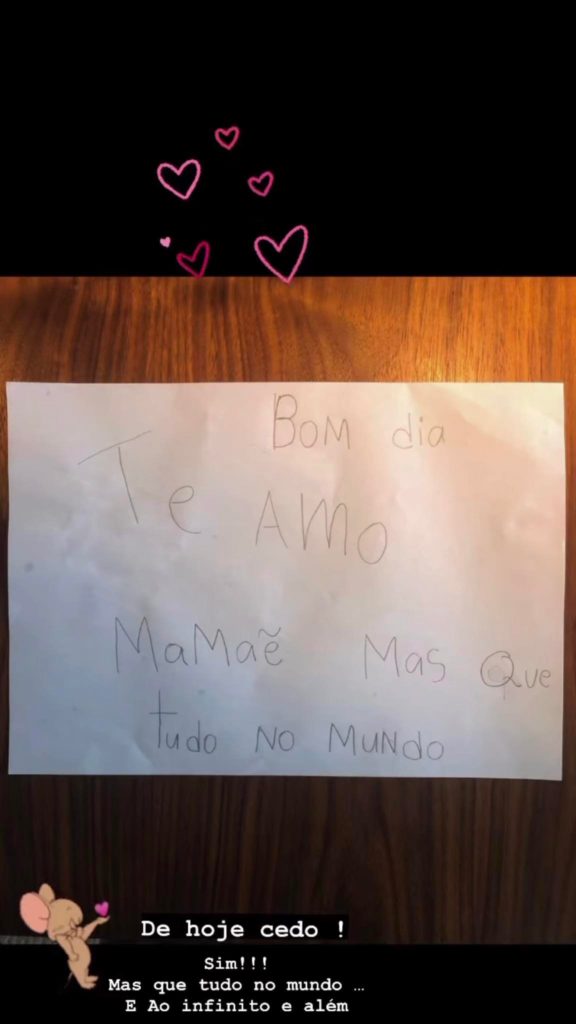 Bom dia
Te AMO
MaMaẽ Mas Que
tudo NO MUNDO
De hoje cedo !
Sim!!!
Mas que tudo no mundo …
E Ao infinito e além